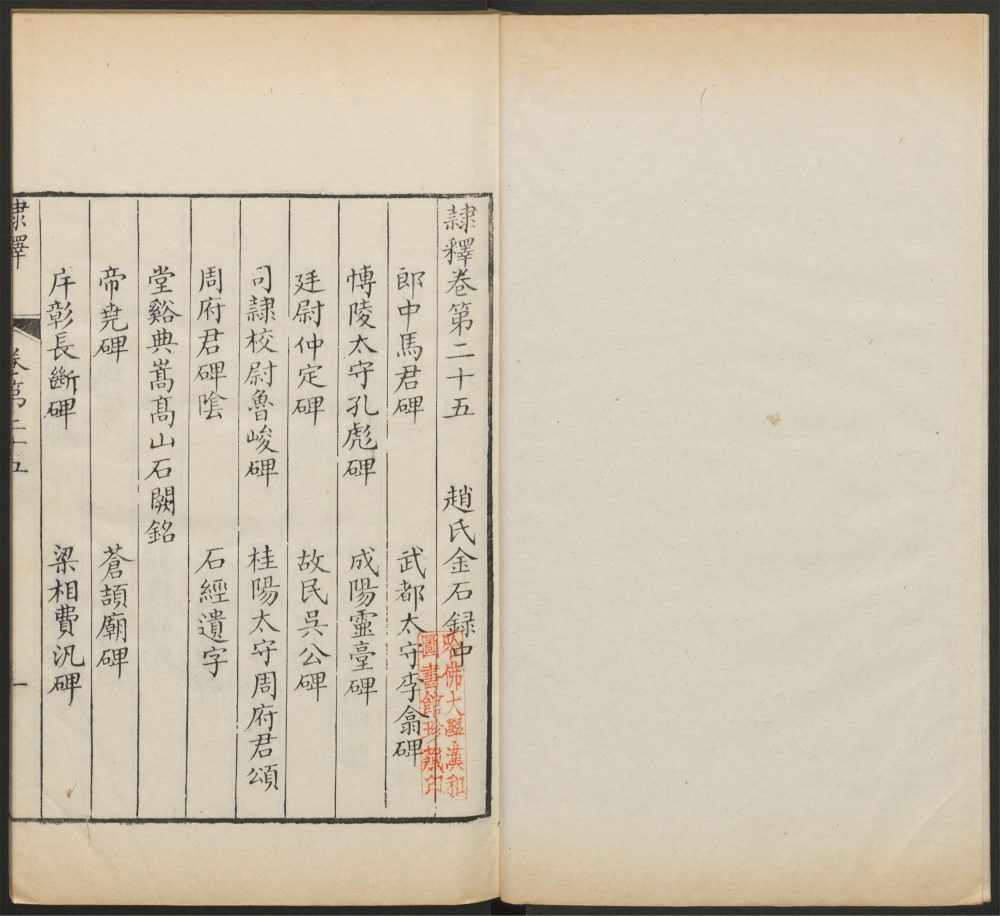 隷釋卷第二十五 趙氏金石録中
郎中馬君碑 武都太守李翕碑
愽陵太守孔彪碑 成陽靈臺碑
廷尉仲定碑 故民吳公碑
司隷校尉魯峻碑 桂陽太守周府君頌
周府君碑陰 石經遺字
堂谿典嵩髙山石闕銘
帝堯碑 蒼頡廟碑
庄彰長斷碑 梁相費汎碑
隷釋 卷第二十五 一
哈佛大學漢和
圖書館珍藏印